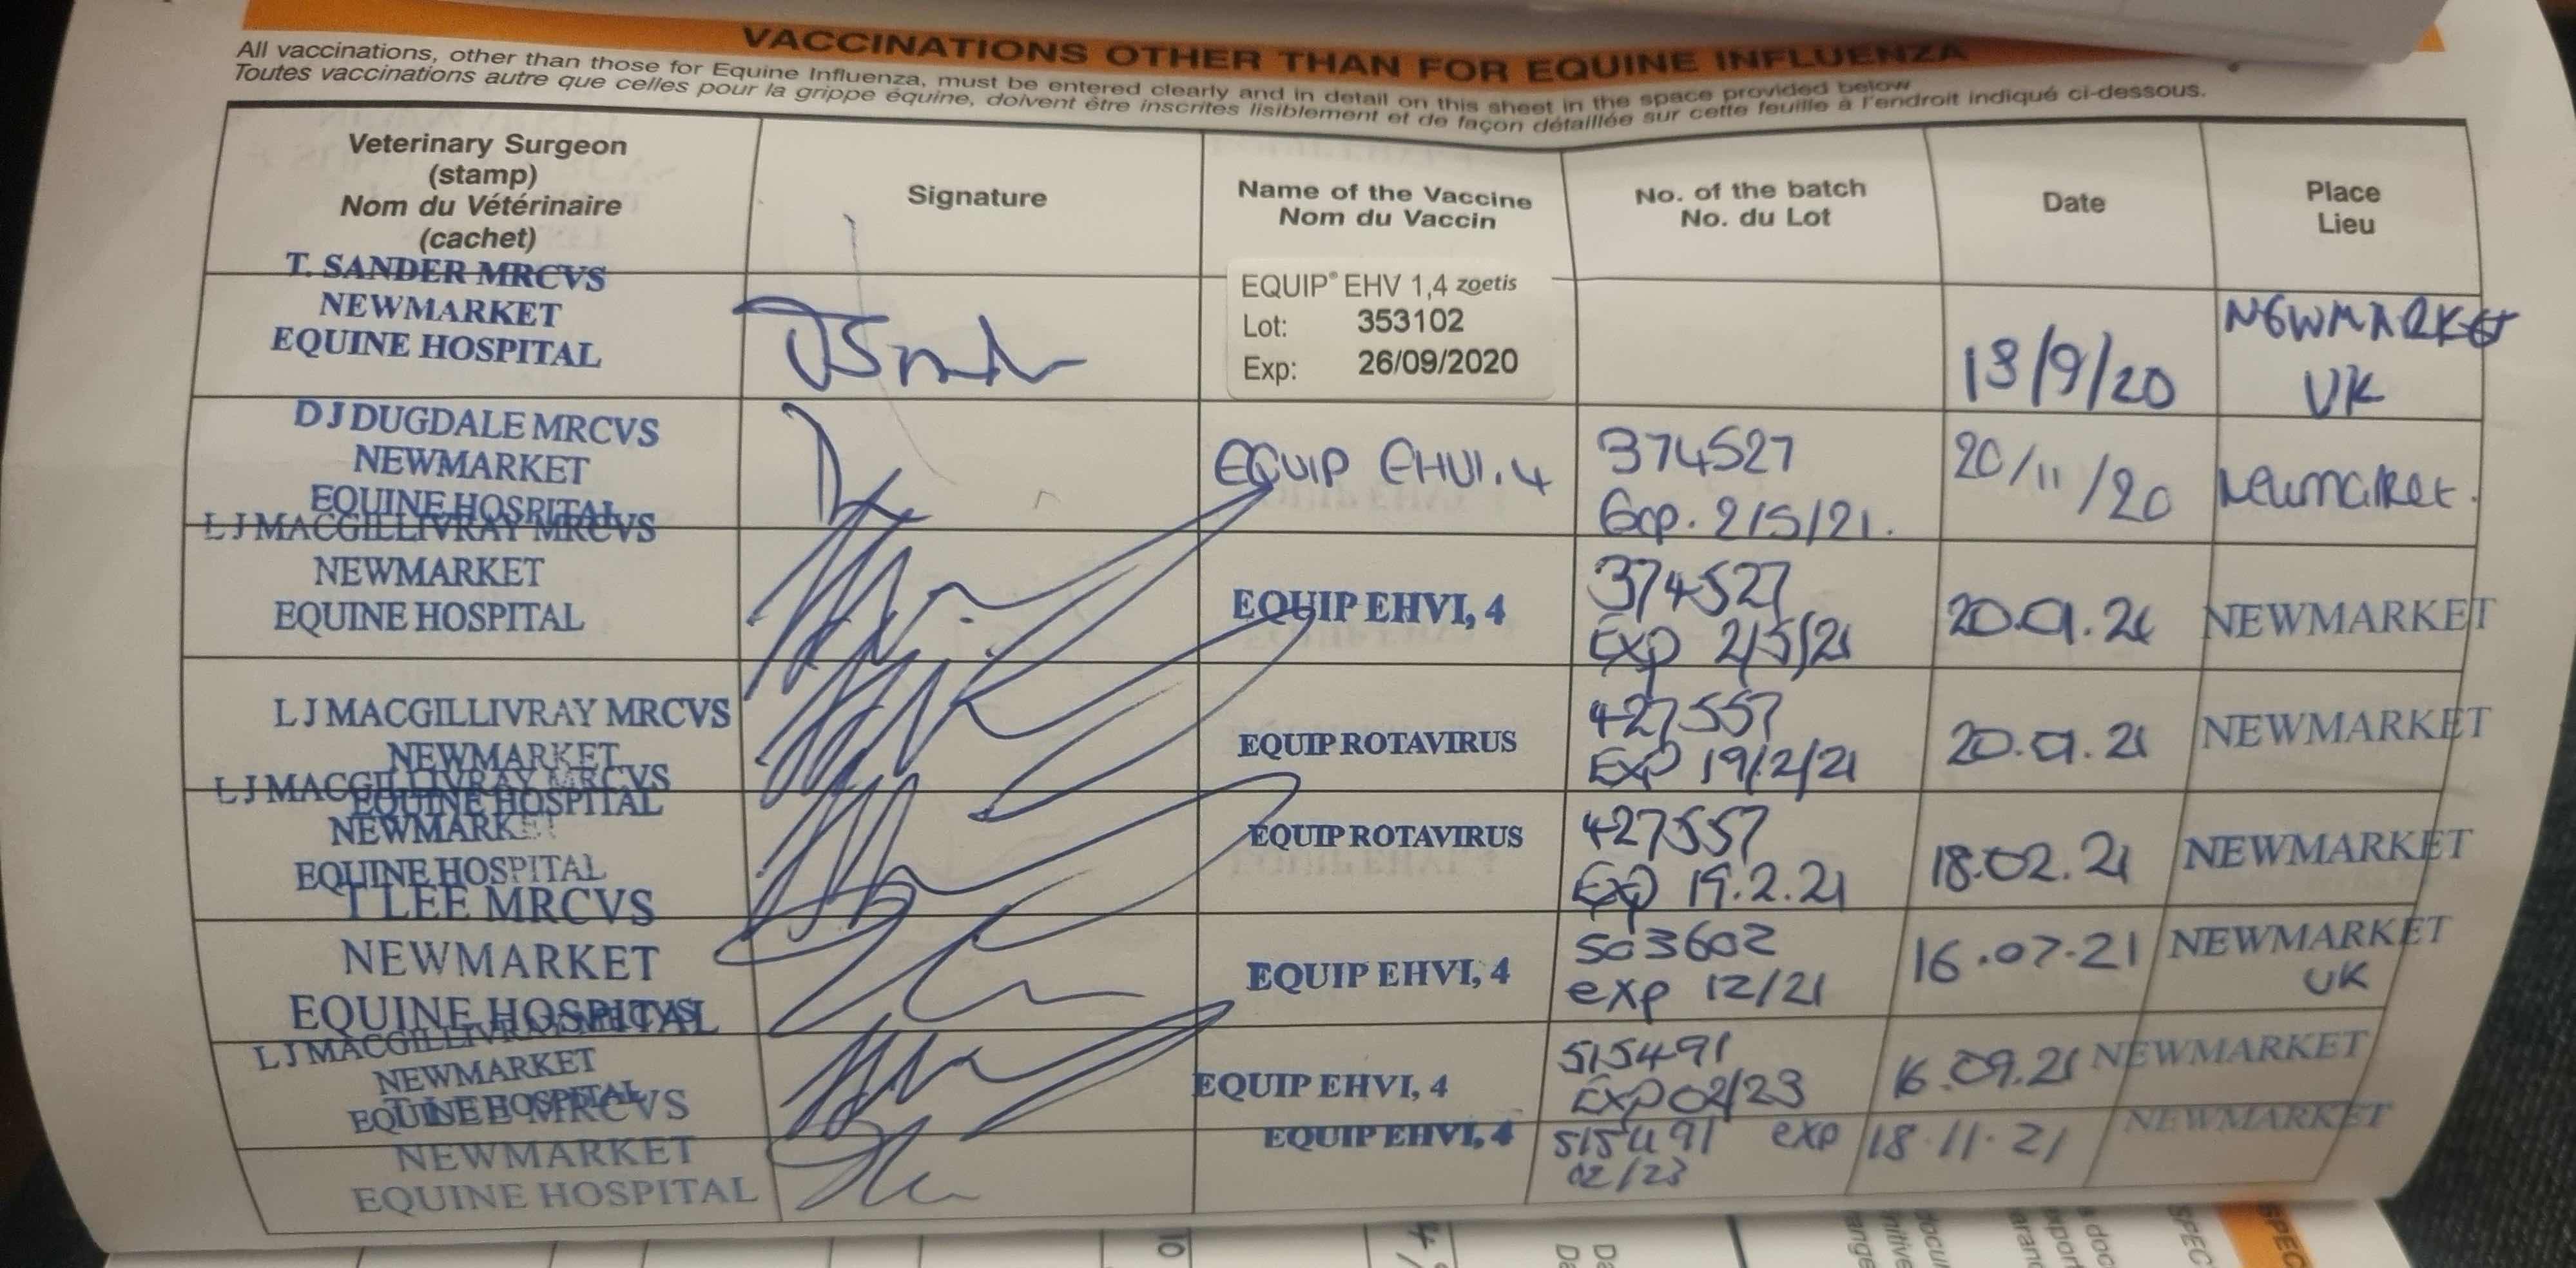 VACCINATIONS OTHER THAN FOR EQUINE INFLUENZA
All vaccinations, other than those for Equine Influenza, must be entered clearly and in detail on this sheet in the space provided below
Toutes vaccinations autre que celles pour la grippe équine, doivent être inscrites lisiblement et de façon détaillée sur cette feuille à l'endroit indiqué ci-dessous.
Veterinary Surgeon
(stamp)
Nom du Vétérinaire
(cachet)
Signature
Name of the Vaccine
Nom du Vaccin
No. of the batch
No. du Lot
Date
Place
Lieu
T. SANDER MRCVS
NEWMARKET
EQUINE HOSPITAL
EQUIP® EHV 1,4 zoetis
Lot: 353102
Exp: 26/09/2020
/9/20
NEWMARKET
UK
D J DUGDALE MRCVS
NEWMARKET
EQUINE HOSPITAL
EQUIP EHV1.4
374527
Exp. 2/5/21.
20/11/20
Newmarket.
L J MACGILLIVRAY MRCVS
NEWMARKET
EQUINE HOSPITAL
EQUIP EHVI, 4
374527
Exp 2/5/21
20.01.21
NEWMARKET
L J MACGILLIVRAY MRCVS
NEWMARKET
EQUINE HOSPITAL
EQUIP ROTAVIRUS
427557
EXP 19/2/21
20.01.21
NEWMARKET
L J MACGILLIVRAY MRCVS
NEWMARKET
EQUINE HOSPITAL
EQUIP ROTAVIRUS
427557
EXP 19.2.21
18.02.21
NEWMARKET
T LEE MRCVS
NEWMARKET
EQUINE HOSPITAL
EQUIP EHVI, 4
503602
exp 12/21
16.07.21
NEWMARKET
UK
L J MACGILLIVRAY MRCVS
NEWMARKET
EQUINE HOSPITAL
EQUIP EHVI, 4
515491
EXP 02/23
16.09.21
NEWMARKET
T LEE MRCVS
NEWMARKET
EQUINE HOSPITAL
EQUIP EHVI, 4
515491 exp
02/23
18.11.21
NEWMARKET
10
SPEC
SPEC